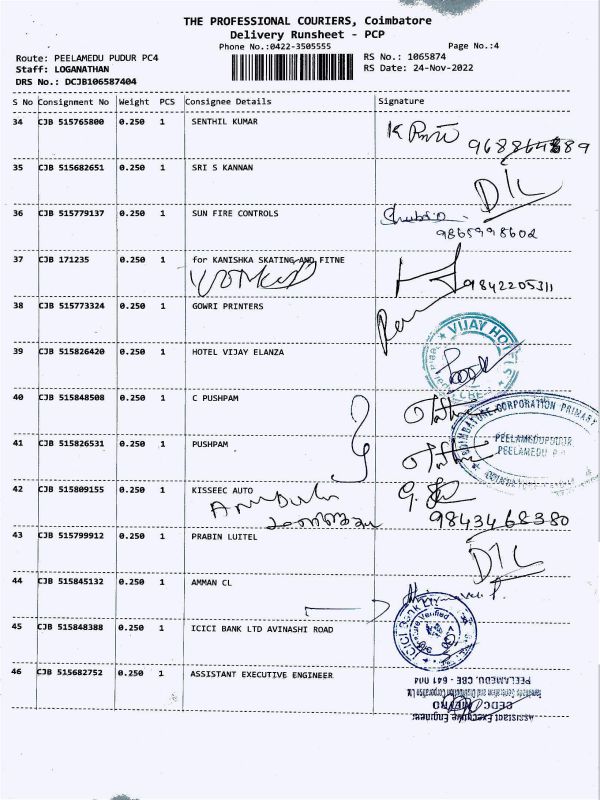 THE PROFESSIONAL COURIERS, Coimbatore
Delivery Runsheet - PCP
Phone No.:0422-3505555
Page No.:4
Route: PEELAMEDU PUDUR PC4
RS No.: 1065874
Staff: LOGANATHAN
RS Date: 24-Nov-2022
DRS No.: DCJB106587404
S No Consignment No Weight PCS Consignee Details Signature
34 CJB 515765800 0.250 1 SENTHIL KUMAR
35 CJB 515682651 0.250 1 SRI S KANNAN D/L
36 CJB 515779137 0.250 1 SUN FIRE CONTROLS
9865998602
37 CJB 171235 0.250 1 for KANISHKA SKATING AND FITNE
9842205311
38 CJB 515773324 0.250 1 GOWRI PRINTERS
VIJAY HOTELS
CBE
39 CJB 515826420 0.250 1 HOTEL VIJAY ELANZA
40 CJB 515848508 0.250 1 C PUSHPAM
COIMBATORE CORPORATION PRIMARY
PEELAMEDUPUDUR
PEELAMEDU
41 CJB 515826531 0.250 1 PUSHPAM
42 CJB 515809155 0.250 1 KISSEEC AUTO
9843468380
43 CJB 515799912 0.250 1 PRABIN LUITEL D/L
44 CJB 515845132 0.250 1 AMMAN CL
ICICI BANK LTD
45 CJB 515848388 0.250 1 ICICI BANK LTD AVINASHI ROAD
46 CJB 515682752 0.250 1 ASSISTANT EXECUTIVE ENGINEER
PEELAMEDU, CBE - 641 004
CEDC METRO
Assistant Executive Engineer